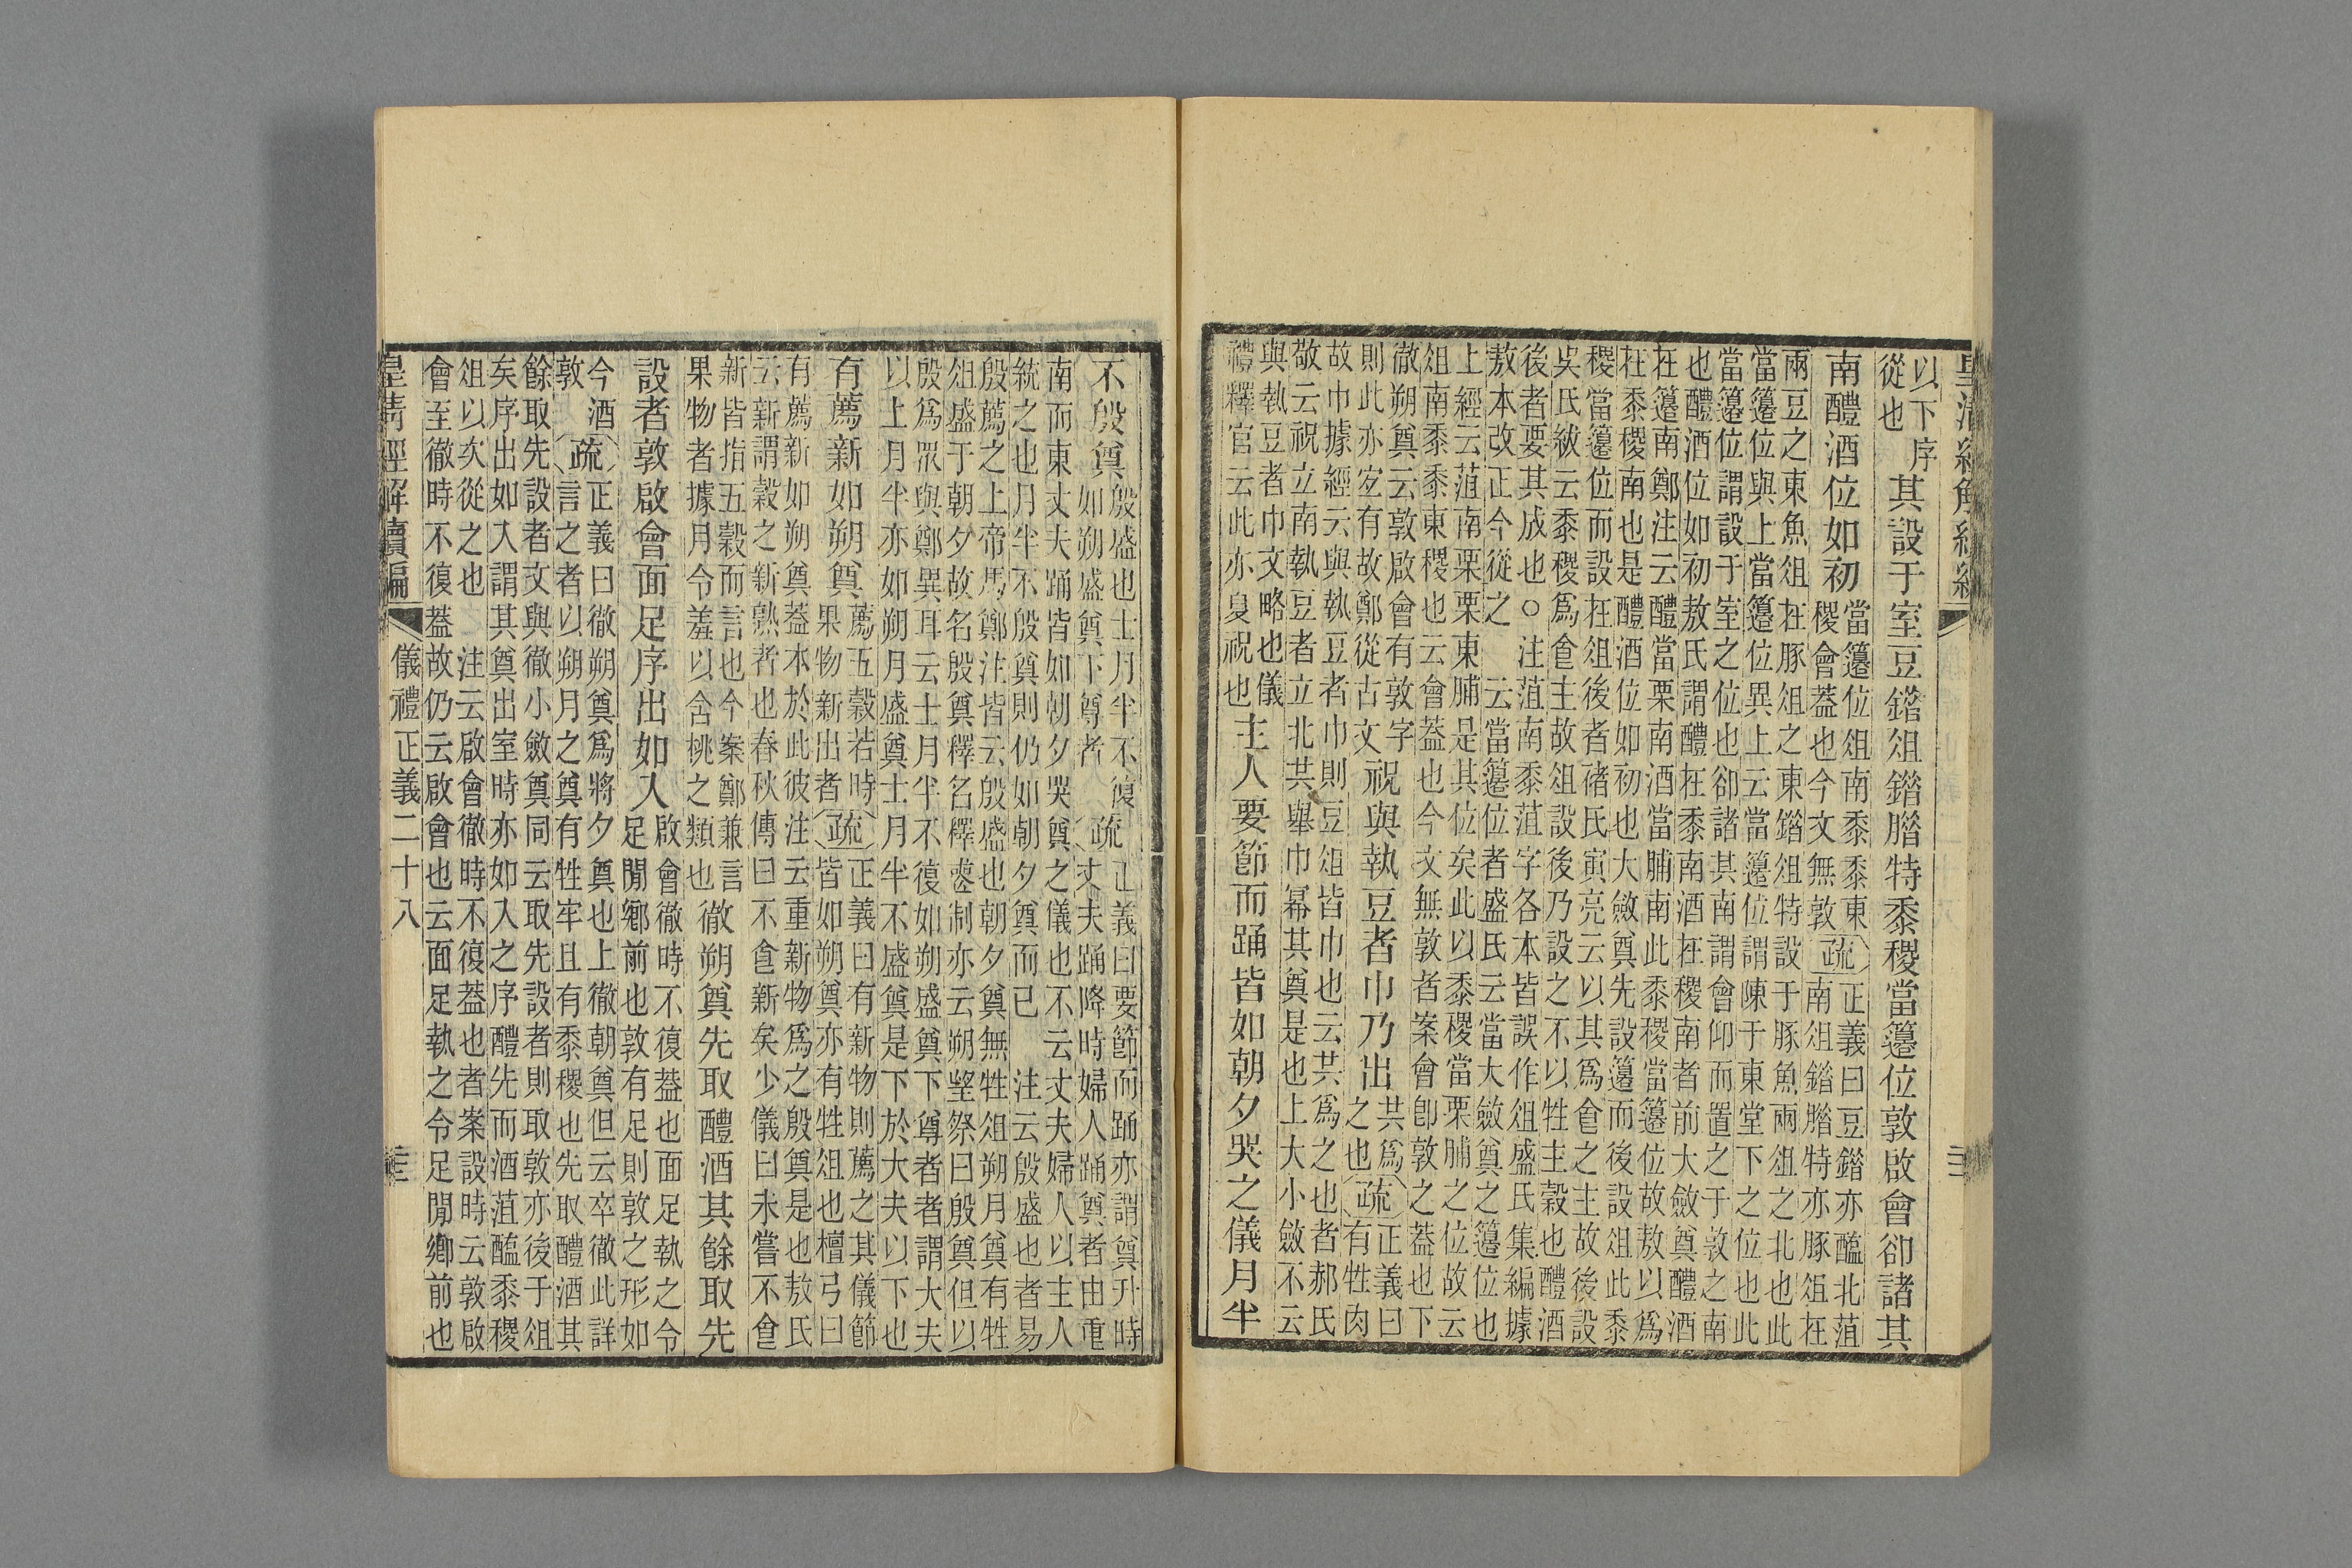 以下序
從也
其設于室豆錯俎錯腊特黍稷當籩位敦啟會卻諸其
南醴酒位如初
當籩位俎南黍黍東
稷會蓋也今文無敦
疏
正義曰豆錯亦醢北菹
南俎錯腊特亦豚俎在
兩豆之東魚俎在豚俎之東錯俎特設于豚魚兩俎之北也此
當籩位與上當籩位異上云當籩位謂陳于東堂下之位也此
當籩位謂設于室之位也卻諸其南謂會仰而置之于敦之南
也醴酒位如初敖氏謂醴在黍南酒在稷南者前大斂奠醴酒
在籩南鄭注云醴當栗南酒當脯南此黍稷當籩位故敖以爲
在黍稷南也是醴酒位如初也大斂奠先設籩而後設俎此黍
稷當籩位而設在俎後者褚氏寅亮云以其爲食之主故後設
吳氏紱云黍稷爲食主故俎設後乃設之不以牲主穀也醴酒
後者要其成也○注菹南黍菹字各本皆誤作俎盛氏集編據
敖本改正今從之 云當籩位者盛氏云當大斂奠之籩位也
上經云菹南栗栗東脯是其位矣此以黍稷當栗脯之位故云
俎南黍黍東稷也云會蓋也今文無敦者案會卽敦之蓋也下
徹朔奠云敦啟會有敦字
則此亦宐有故鄭從古文
祝與執豆者巾乃出
共爲
之也
疏
正義曰
有牲肉
故巾據經云與執豆者巾則豆俎皆巾也云共爲之也者郝氏
敬云祝立南執豆者立北共舉巾冪其奠是也上大小斂不云
與執豆者巾文略也儀
禮釋官云此亦夏祝也
主人要節而踊皆如朝夕哭之儀月半
不殷奠
殷盛也士月半不復
如朔盛奠下尊者
疏
正義曰要節而踊亦謂奠升時
丈夫踊降時婦人踊奠者由重
南而東丈夫踊皆如朝夕哭奠之儀也不云丈夫婦人以主人
統之也月半不殷奠則仍如朝夕奠而已 注云殷盛也者易
殷薦之上帝馬鄭注皆云殷盛也朝夕奠無牲俎朔月奠有牲
俎盛于朝夕故名殷奠釋名釋喪制亦云朔望祭曰殷奠但以
殷爲眾與鄭異耳云士月半不復如朔盛奠下尊者者謂大夫
以上月半亦如朔月盛奠士月半不盛奠是下於大夫以下也
有薦新如朔奠
薦五穀若時
果物新出者
疏
正義曰有新物則薦之其儀節
皆如朔奠亦有牲俎也檀弓曰
有薦新如朔奠蓋本於此彼注云重新物爲之殷奠是也敖氏
云新謂穀之新熟者也春秋傳曰不食新矣少儀曰未嘗不食
新皆指五穀而言也今案鄭兼言
果物者據月令羞以含桃之類也
徹朔奠先取醴酒其餘取先
設者敦啟會面足序出如入
啟會徹時不復蓋也面足執之令
足閒鄉前也敦有足則敦之形如
今酒
敦
疏
正義曰徹朔奠爲將夕奠也上徹朝奠但云卒徹此詳
言之者以朔月之奠有牲牢且有黍稷也先取醴酒其
餘取先設者文與徹小斂奠同云取先設者則取敦亦後于俎
矣序出如入謂其奠出室時亦如入之序醴先而酒菹醢黍稷
俎以次從之也 注云啟會徹時不復蓋也者案設時云敦啟
會至徹時不復蓋故仍云啟會也云面足執之令足閒鄉前也
皇清經解續編
儀禮正義二十八